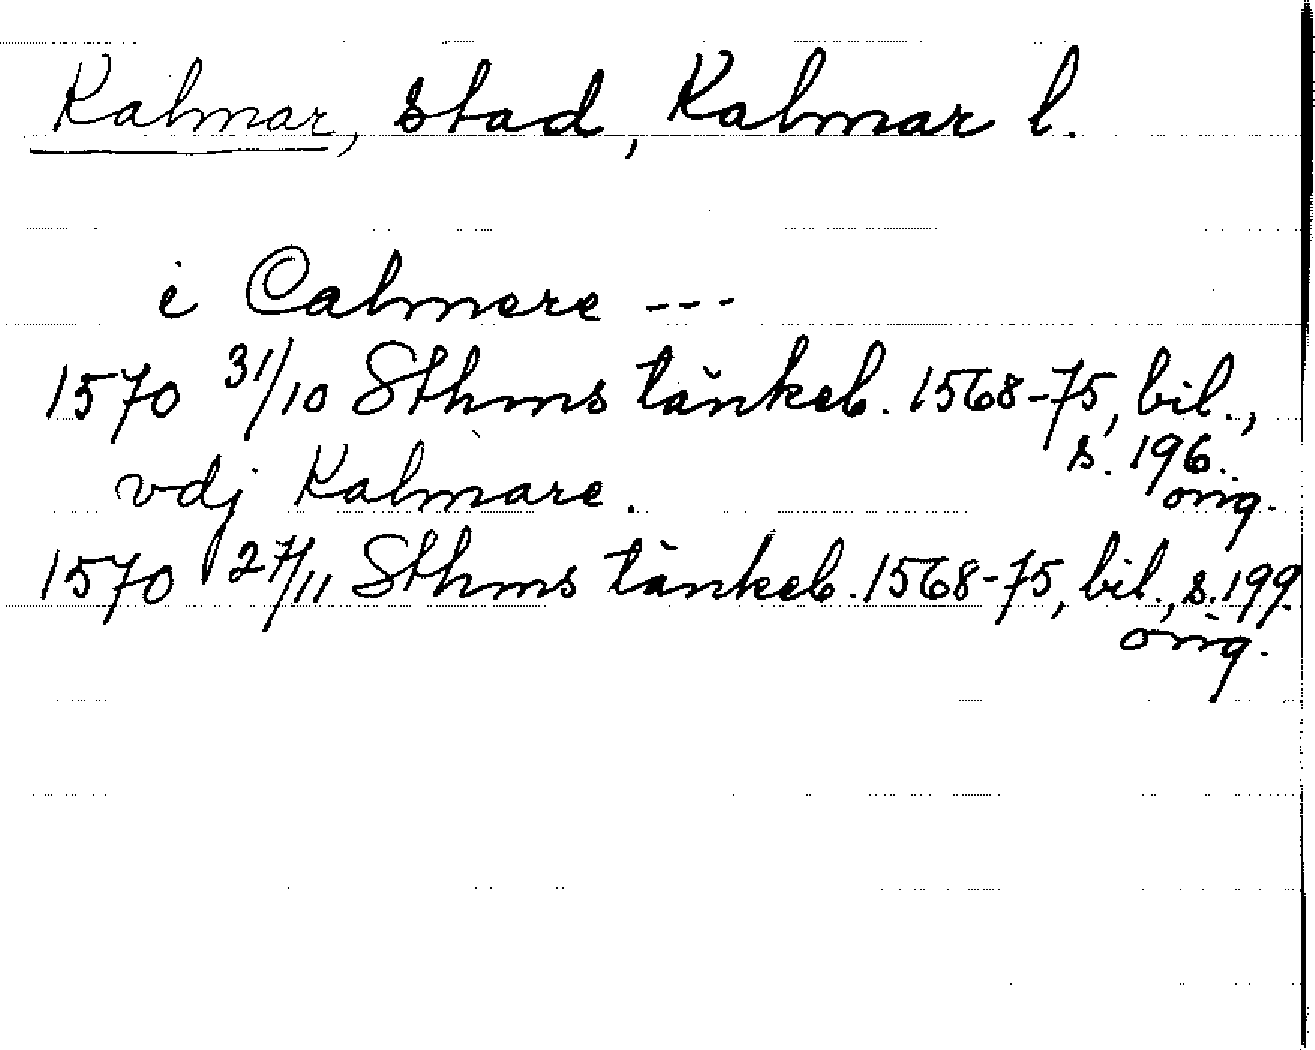 Kalmar, stad, Kalmar l.
i Calmere ---
1570 31/10 Sthms tänkeb. 1568-75, bil.,
s. 196.
orig.
vdj Kalmare.
1570 27/11 Sthms tänkeb. 1568-75, bil., s. 199.
orig.